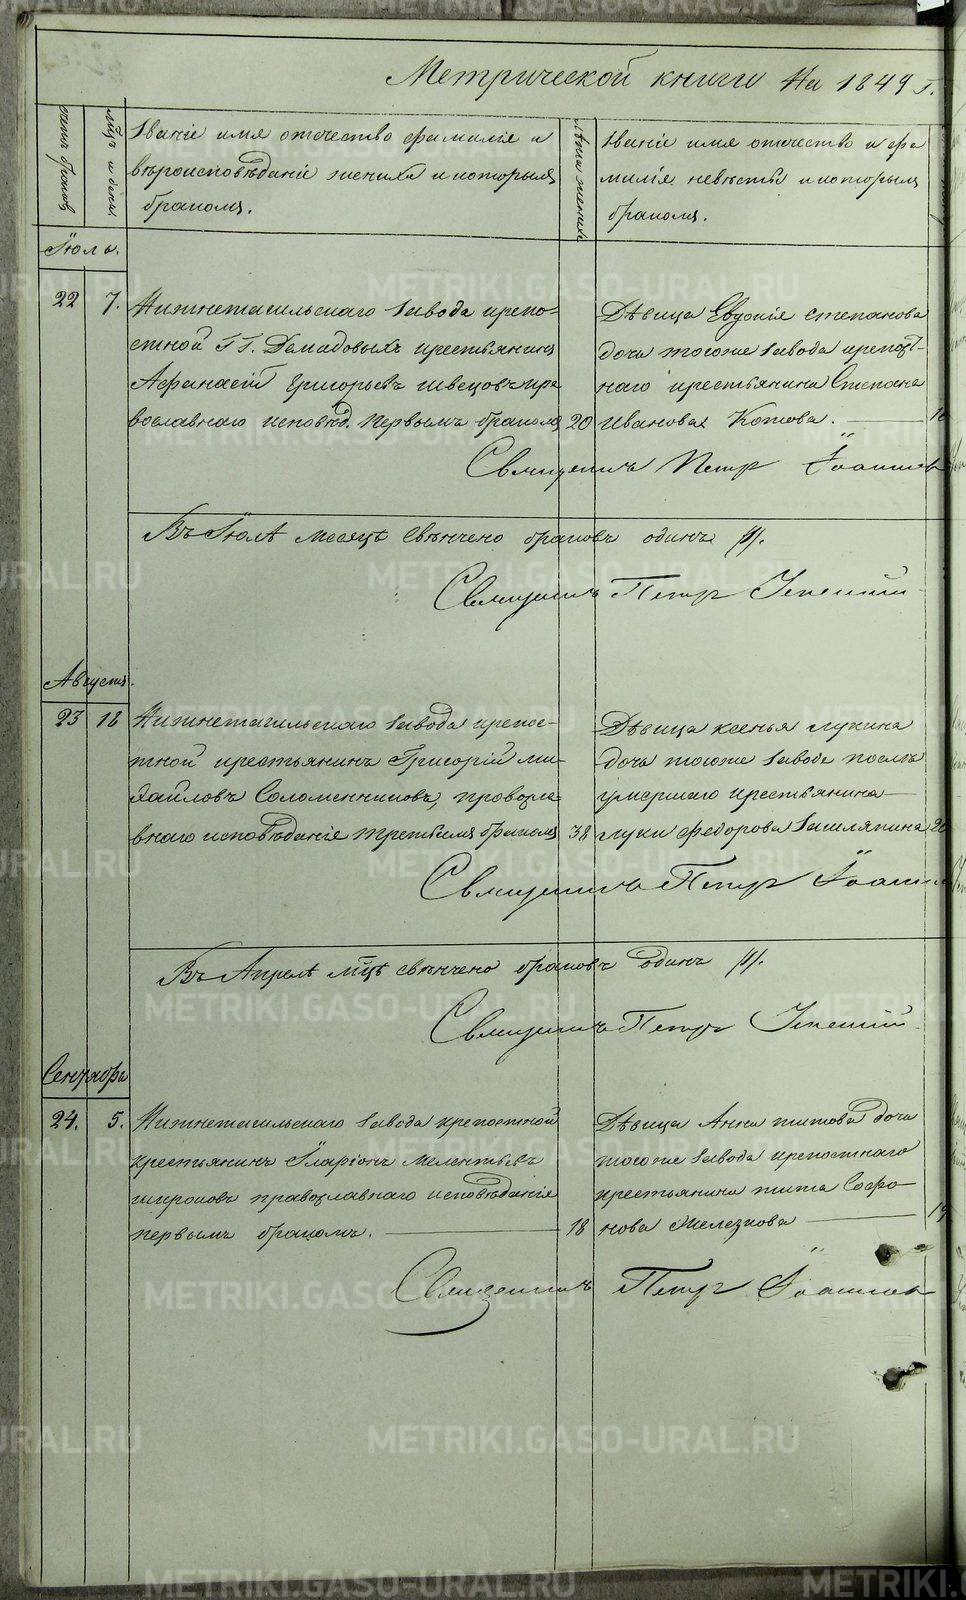 Метрической книги На 1849 г.
счетъ браковъ
мѣц и день
Званіе имя отчество фамиліе и
вѣроисповѣданіе жениха и которымъ
бракомъ.
лѣта жениха
Званіе имя отчество и фа
миліе невѣсты и которымъ
бракомъ.
Іюль.
22 7. Нижнетагильскаго Завода крепо-
стной Г.Г. Демидовыхъ крестьянинъ
Афанасій Григорьевъ Швецовъ пра
вославнаго исповѣд. Первымъ бракомъ 20
Дѣвица Евдокія Степанова
дочь тогоже Завода крепост-
наго крестьянина Степана
Иванова Котова.
Священникъ Петр
Въ Іюлѣ месяцѣ Свѣнчено браковъ одинъ /1/.
Священникъ Петръ
Августъ.
23 18 Нижнетагильскаго Завода крепос-
тной крестьянинъ Григорій Ми-
хайловъ Соломенниковъ, провозла-
внаго исповѣданіе третьимъ бракомъ 38
Дѣвица Ксенья Лукина
дочь тогоже Завода послѣ
умершаго крестьянина
Луки Федорова
Священникъ Петръ
Въ Апрелѣ мцѣ свѣнчено браковъ один /1/.
Священникъ Петръ
Сентябрь
24. 5. Нижнетагильскаго Завода крепостной
крестьянинъ Иларіонъ Мелентьевъ
Широковъ правозлавнаго исповѣданіе
первымъ бракомъ. 18
Дѣвица Анна Титова дочь
тогоже Завода крепостнаго
крестьянина Тита Софро-
нова Железкова 19
Священникъ Петръ
METRIKI.GASO-URAL.RU